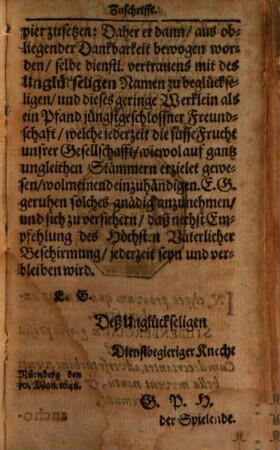 Zuschrifft.
pier zusetzen: Daher er dann/ aus ob-
liegender Dankbarkeit bewogen wor-
den/ selbe dienstl. vertrauens mit des
Unglükseligen Namen zu beglückse-
ligen/ und dieses geringe Werklein als
ein Pfand jüngstgeschloßner Freund-
schaft/ welche jederzeit die süsse Frucht
unsrer Gesellschafft/ wiewol auf gantz
ungleichen Stämmern erzielet gewe-
sen/ wolmeinend einzuhändigen. E. G.
geruhen solches gnädig anzunehmen/
und sich zu versichern/ daß nechst Em-
pfehlung des Höchsten Väterlicher
Beschirmung/ jederzeit seyn und ver-
bleiben wird.
E. G.
Deß Unglückseligen
Dienstbegieriger Knecht
Nürnberg den
May. 1648.
G. P. H.
der Spielende.